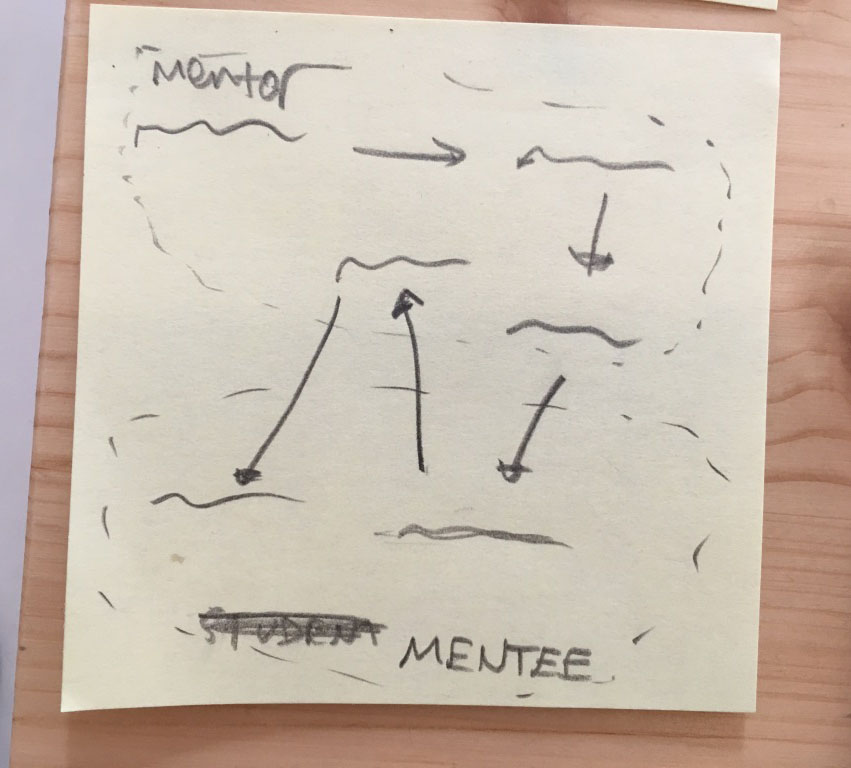 Mentor
STUDENT MENTEE